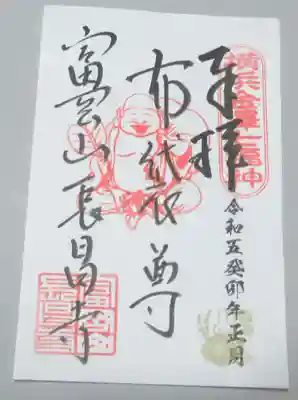 横浜金澤七福神
奉拝
令和五癸卯年正月
布袋尊
富雲山長昌寺